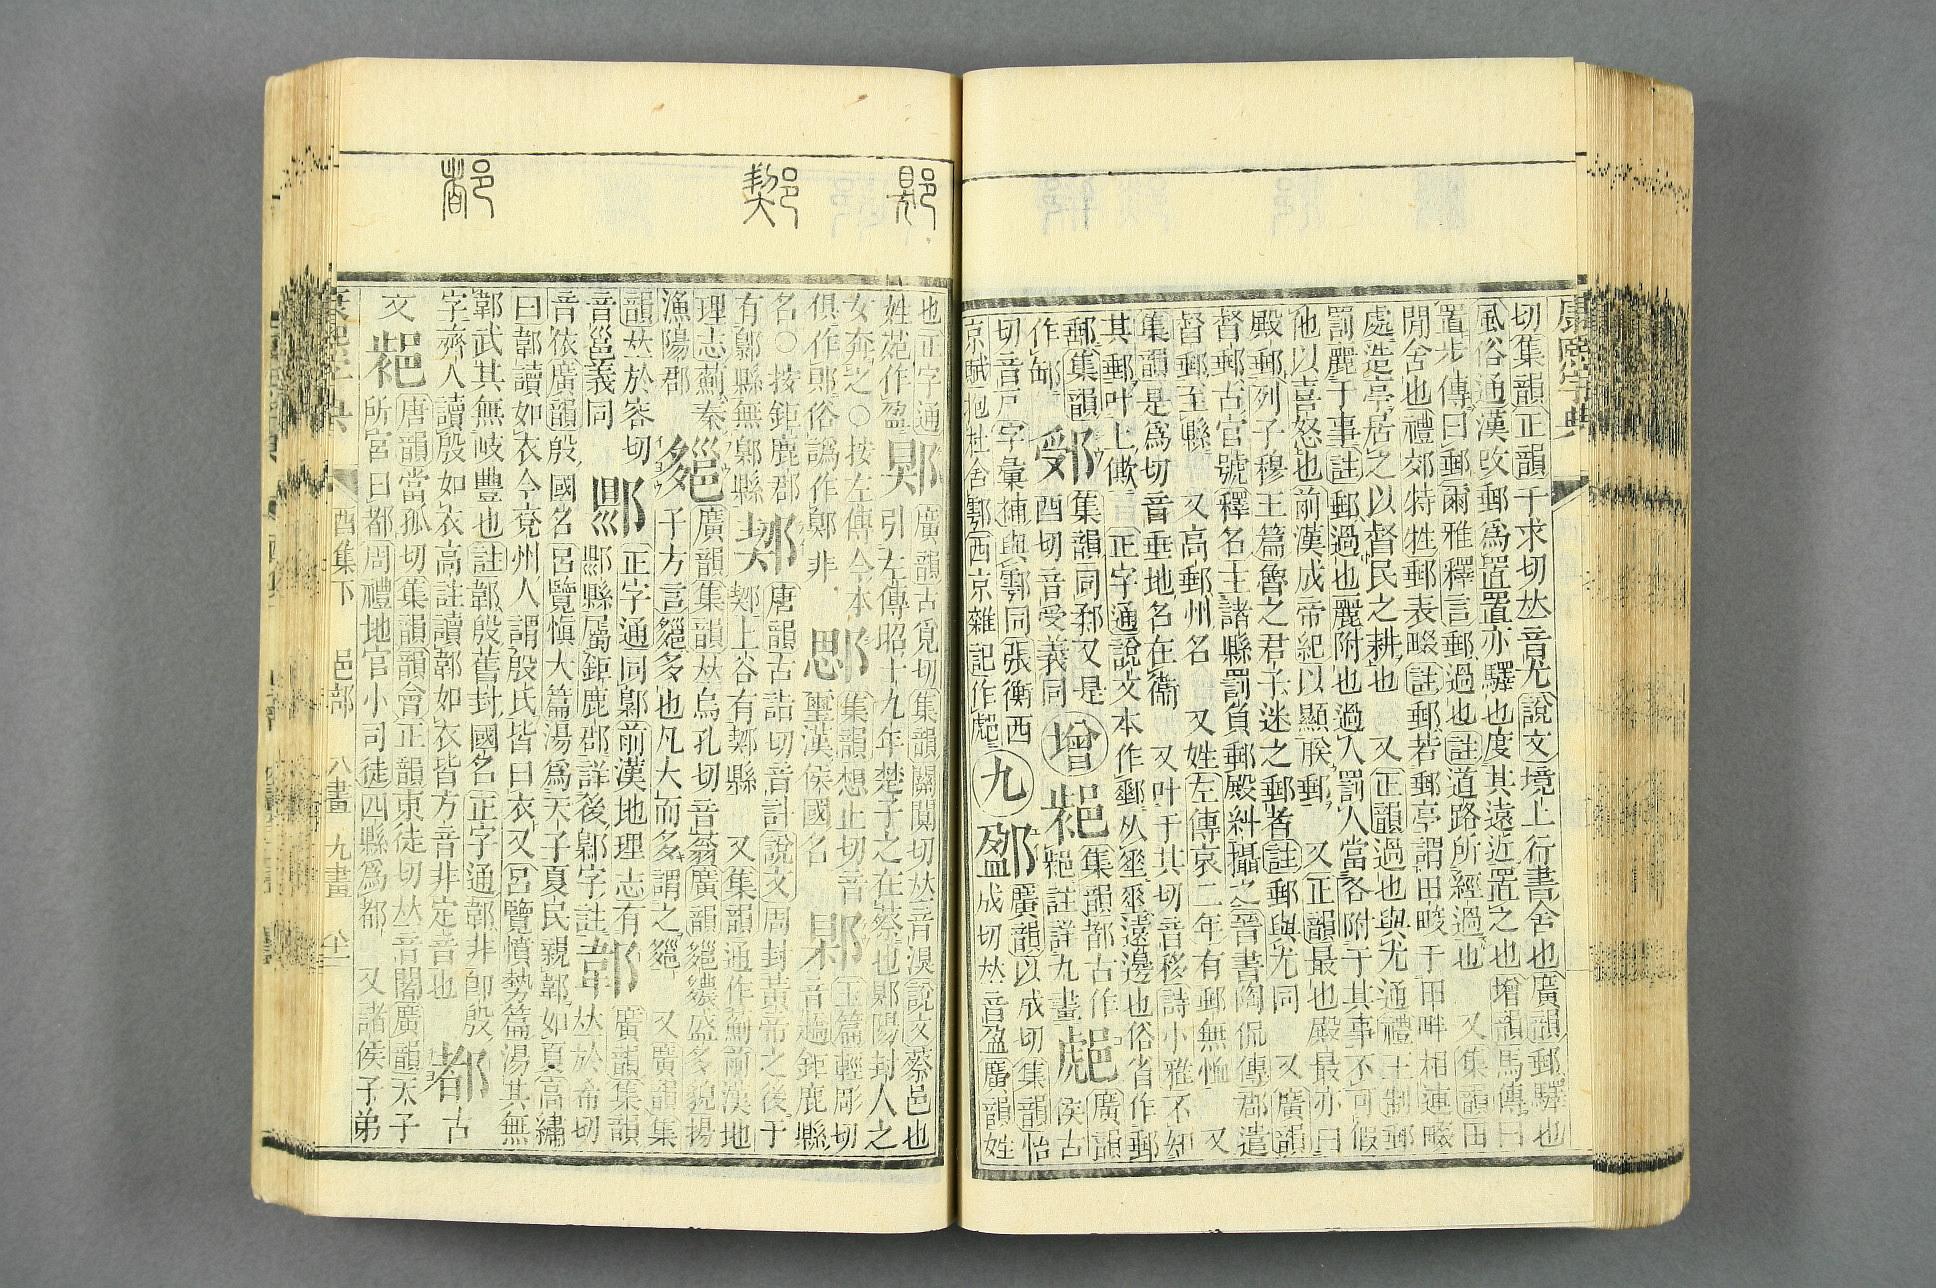 康熙字典
切集韻正韻于求切𠀤音尤說文境上行書舍也廣韻郵驛也
風俗通漢改郵爲置置亦驛也度其遠近置之也增韻馬傳曰
置步傳曰郵爾雅釋言郵過也註道路所經過也 又集韻田
閒舍也禮郊特牲郵表畷註郵若郵亭謂田畯于田畔相連畷
處造亭居之以督民之耕也 又正韻過也與尤通禮王制郵
罰麗于事註郵過也麗附也過人罰人當各附于其事不可假
他以喜怒也前漢成帝紀以顯朕郵 又正韻最也殿最亦曰
殿郵列子穆王篇魯之君子迷之郵者註郵與尤同 又廣韻
督郵古官號釋名主諸縣罰負郵殿糾攝之晉書陶侃傳郡遣
督郵至縣 又高郵州名 又姓左傳哀二年有郵無恤 又
集韻是爲切音垂地名在衞 又叶于其切音移詩小雅不知
其郵叶上僛音 正字通說文本作𨜏从𡍮𡍮遠邊也俗省作郵
郵集韻 集韻同䣋又是
作䣋 酉切音受義同 增 集韻都古作 廣韻
切音戶字彙補與鄠同張衡西 註詳九畫 侯古
京賦抱杜含鄠西京雜記作 九 廣韻以成切集韻怡
成切𠀤音盈廣韻姓
鄍 鄓 都
也正字通 廣韻古覓切集韻扃闃切𠀤音湨說文蔡邑也
姓苑作盈 郹 引左傳昭十九年楚子之在蔡也郹陽封人之
女奔之〇按左傳今本 集韻想止切音 玉篇輕彫切
俱作郹俗譌作鄓非 璽漢侯國名 鄡 音趬鉅鹿縣
名〇按鉅鹿郡 唐韻古詣切音計說文周封黃帝之後于
有鄡縣無鄓縣 上谷有縣 又集韻通作薊前漢地
理志薊秦 廣韻集韻𠀤烏孔切音蓊廣韻濃盛多貌揚
漁陽郡 子方言多也凡大而多謂之 又廣韻集
韻𠀤於容切 正字通同鄡前漢地理志有 廣韻集韻
音邕義同 縣屬鉅鹿郡詳後鄡字註 鄣 𠀤於希切
音依廣韻殷國名呂覽愼大篇湯爲天子夏民親郼如夏高繡
曰郼讀如衣今兗州人謂殷氏皆曰衣又呂覽憤勢篇湯其無
郼武其無岐豐也註郼殷舊封國名正字通郼非卽殷
字齊人讀殷如衣高註讀郼如衣皆方音非定音也 都 古
文 唐韻當孤切集韻韻會正韻東徒切𠀤音闍廣韻天子
所宮曰都周禮地官小司徒四縣爲都 又諸侯子弟
康熙字典 酉集下 邑部 八畫 九畫